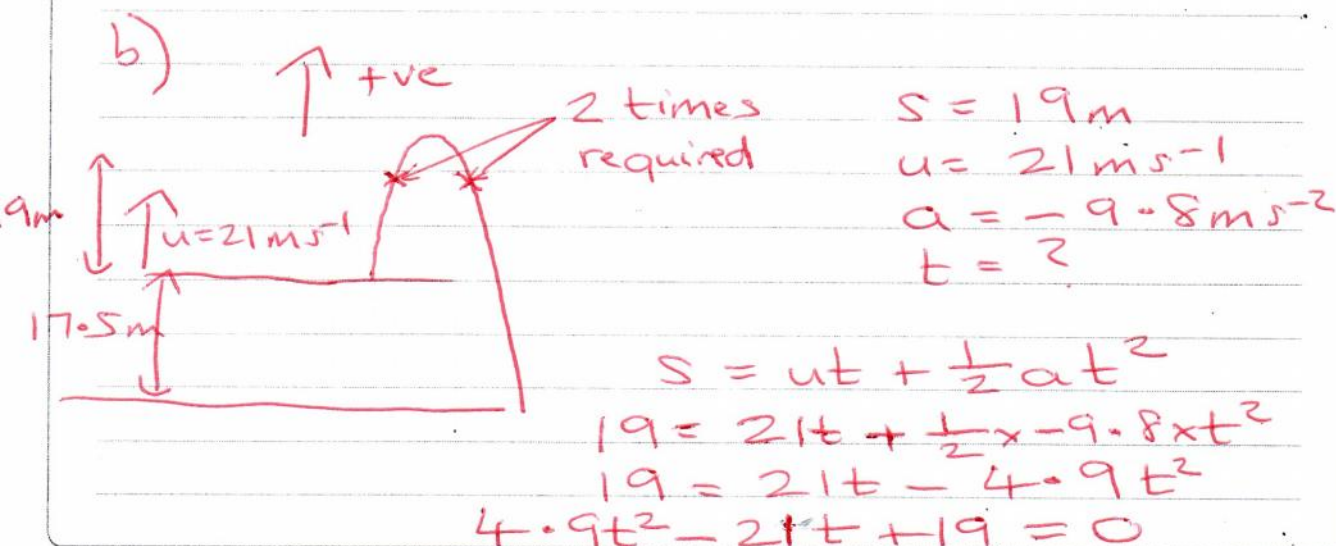 b)
+ve
2 times
required
s = 19m
u = 21ms⁻¹
a = -9.8ms⁻²
t = ?
9m
u=21ms⁻¹
17.5m
s = ut + ½at²
19 = 21t + ½x-9.8xt²
19 = 21t - 4.9t²
4.9t² - 21t + 19 = 0